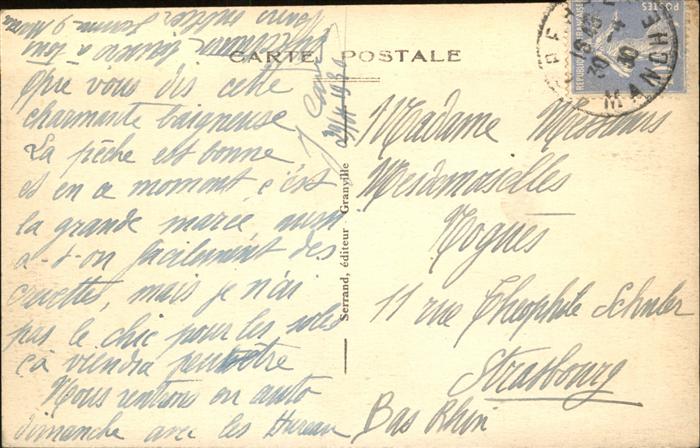 CARTE POSTALE
Que vous dis cette
charmante baigneuse
La pêche est bonne
et en ce moment c'est
la grande marée, aussi
a-t-on facilement des
crevettes, mais je n'ai
pas le chic pour les soles
çà viendra peut être
Nous rentrons en auto
dimanche avec les
baisers à tous
Serrand, éditeur - Granville
Madame Messieurs
Mesdemoiselles
Noguès
11 rue Théophile Schuler
Strasbourg
Bas Rhin
POSTES
MANCHE
30